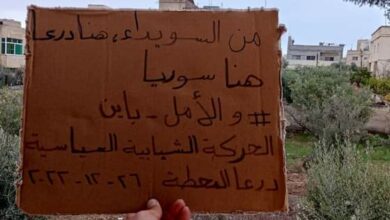 من السويداء، هنا درعا
هنا سوريا
# و الأمل - باين
الحركة الشبابية السياسية
درعا المحطة ٢٦-١٢-٢٠٢٢